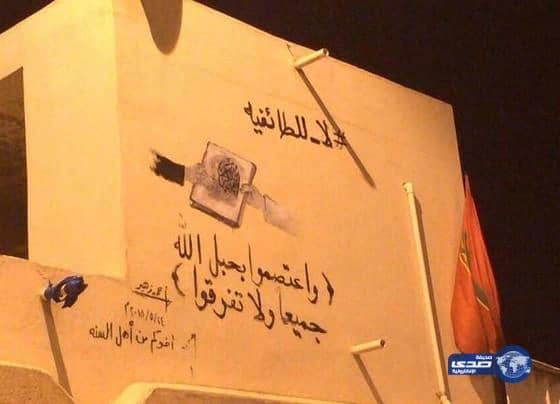 #لا_للطائفيه
﴿واعتصموا بحبل الله
جميعا ولا تفرقوا﴾
أخوكم من أهل السنه
صحيفة
صدى
الإلكترونية